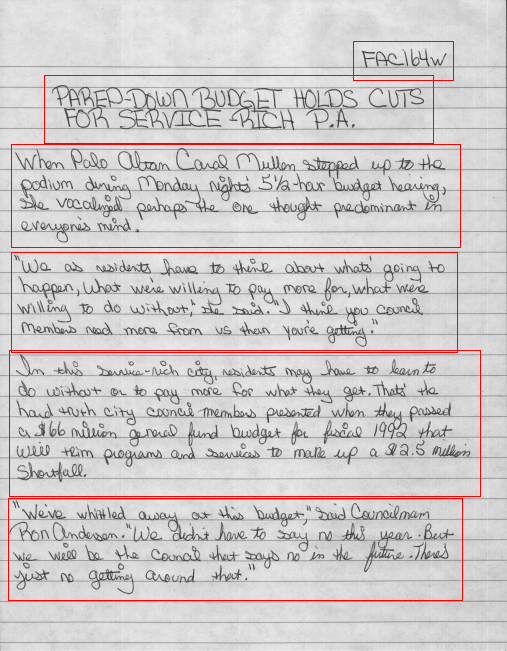 FAC164W
PARED-DOWN BUDGET HOLDS CUTS
FOR SERVICE-RICH P.A.
When Palo Altan Carol Mullen stepped up to the
podium during Monday nights' 5½-hour budget hearing,
she vocalized, perhaps the one thought predominant in
everyone's mind.
"We as residents have to think about whats' going to
happen, what we're willing to pay more for, what we're
willing to do without," she said. "I think you council
members need more from us than you're getting."
In this service-rich city, residents may have to learn to
do without or to pay more for what they get. That's the
hard truth city council members presented when they passed
a $66 million general fund budget for fiscal 1992 that
will trim programs and services to make up a $2.5 million
shortfall.
"We've whittled away at this budget," said Councilmam
Ron Anderson. "We didn't have to say no this year. But
we will be the Council that says no in the future. There's
just no getting around that."